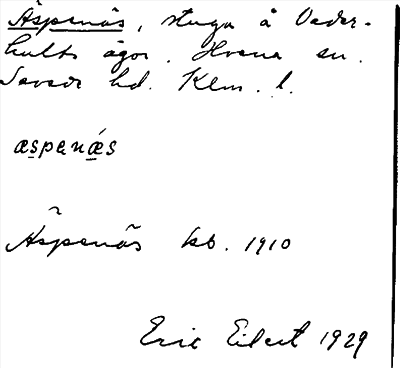 Äspenäs, stuga å Vader-
hults ägor. Hvena sn.
Sevede hd. Klm. l.
æspenǽs
Äspenäs kb. 1910
Eric Eilert 1929